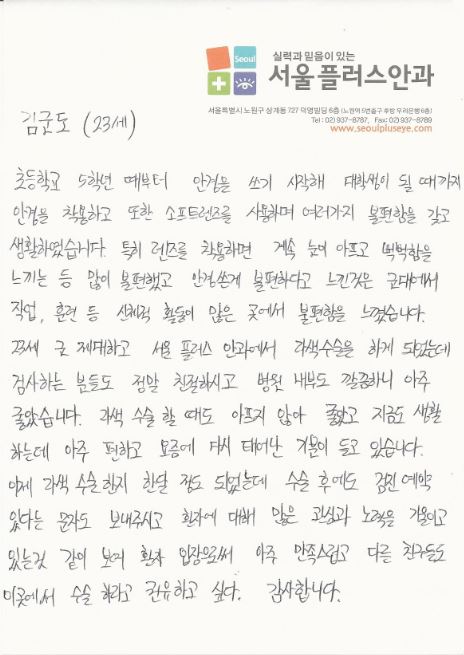 Seoul
실력과 믿음이 있는
서울플러스안과
서울특별시 노원구 상계동 727 덕영빌딩 6층 (노원역 5번출구 후방 우리은행 6층)
Tel : 02) 937-8787, Fax: 02) 937-8789
www.seoulpluseye.com
김군도 (23세)
초등학교 5학년 때부터 안경을 쓰기 시작해 대학생이 될 때까지
안경을 착용하고 또한 소프트렌즈를 사용하며 여러가지 불편함을 갖고
생활하였습니다. 특히 렌즈를 착용하면 계속 눈이 아프고 뻑뻑함을
느끼는 등 많이 불편했고 안경쓰는게 불편하다고 느낀것은 군대에서
작업, 훈련 등 신체적 활동이 많은 곳에서 불편함을 느꼈습니다.
23세 군 제대하고 서울 플러스 안과에서 라색수술을 하게 되었는데
검사하는 분들도 정말 친절하시고 병원 내부도 깔끔하니 아주
좋았습니다. 라색 수술 할 때도 아프지 않아 좋았고 지금도 생활
하는데 아주 편하고 요즘에 다시 태어난 기분이 들고 있습니다.
이제 라색 수술한지 한달 정도 되었는데 수술 후에도 검진 예약
있다는 문자도 보내주시고 환자에 대해 많은 관심과 노력을 기울이고
있는것 같이 보여 환자 입장으로써 아주 만족스럽고 다른 친구들도
이곳에서 수술 하라고 권유하고 싶다. 감사합니다.